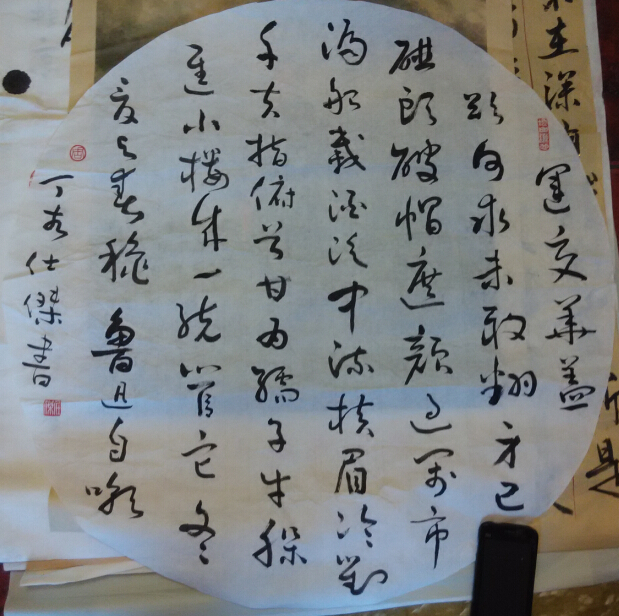 在深
是
運交華蓋
欲何求未敢翻身已
碰頭破帽遮顏過鬧市
漏船載酒泛中流橫眉冷對
千夫指俯首甘為孺子牛躲
進小樓成一統管它冬
夏与春秋魯迅自嘲
丁酉仕傑書